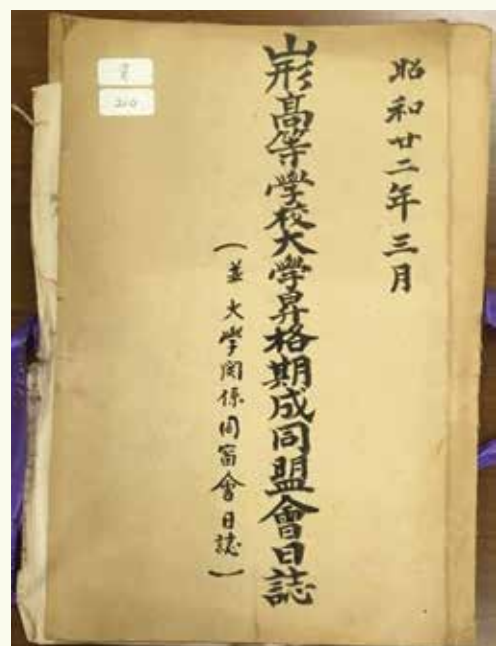 昭和廿二年三月
山形高等學校大學昇格期成同盟會日誌
(並大學関係同窗會日誌)
210